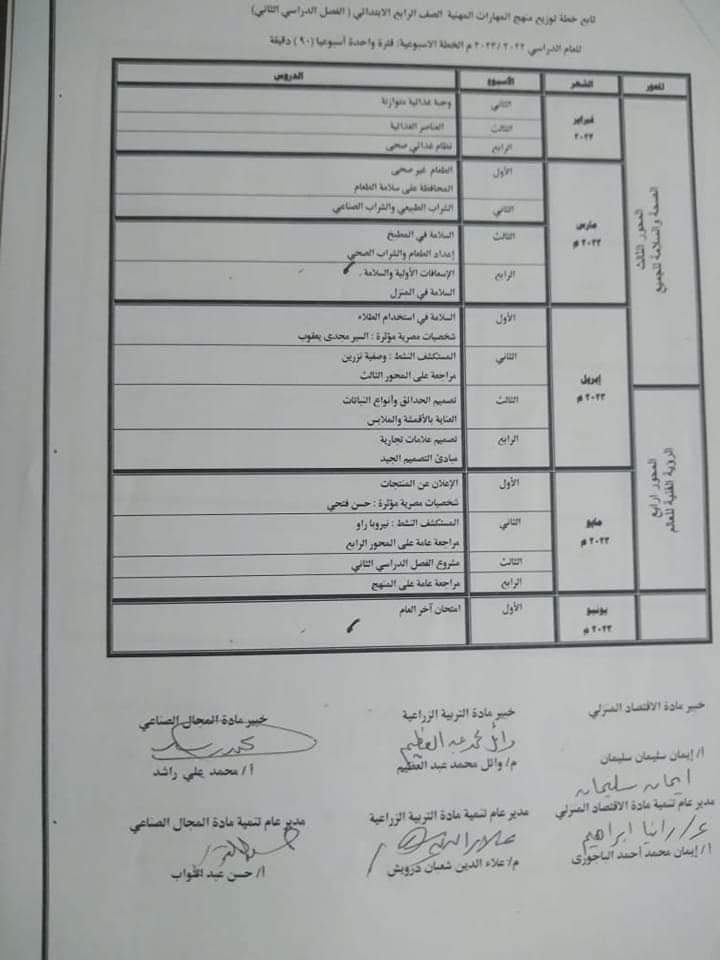 تابع خطة توزيع منهج المهارات المهنية الصف الرابع الابتدائي ( الفصل الدراسي الثاني)
للعام الدراسي ٢٠٢٢ /٢٠٢٣ م الخطة الاسبوعية: فترة واحدة أسبوعيا (٩٠) دقيقة
المحور الشهر الأسبوع الدروس
المحور الثالث
الصحة والسلامة للجميع
فبراير
٢٠٢٣
الثاني وجبة غذائية متوازنة
الثالث العناصر الغذائية
الرابع نظام غذائي صحى
مارس
٢٠٢٣ م
الأول الطعام غير صحى
المحافظة على سلامة الطعام
الثاني الشراب الطبيعي والشراب الصناعي
الثالث السلامة في المطبخ
إعداد الطعام والشراب الصحي
الرابع الإسعافات الأولية والسلامة .
السلامة في المنزل
إبريل
٢٠٢٣ م
الأول السلامة في استخدام الطلاء
شخصيات مصرية مؤثرة : السير مجدى يعقوب
الثاني المستكشف النشط : وصفية نزرين
مراجعة على المحور الثالث
المحور الرابع
الرؤية الفنية للعالم
الثالث تصميم الحدائق وأنواع النباتات
العناية بالأقمشة والملابس
الرابع تصميم علامات تجارية
مبادئ التصميم الجيد
مايو
٢٠٢٣ م
الأول الإعلان عن المنتجات
شخصيات مصرية مؤثرة : حسن فتحي
الثاني المستكشف النشط : نيروبا راو
مراجعة عامة على المحور الرابع
الثالث مشروع الفصل الدراسي الثاني
الرابع مراجعة عامة على المنهج
يونيو
٢٠٢٣ م
الأول امتحان آخر العام
خبير مادة الاقتصاد المنزلي خبير مادة التربية الزراعية خبير مادة المجال الصناعي
وائل محمد عبد العظيم
أ/ إيمان سليمان سليمان م/ وائل محمد عبد العظيم أ/ محمد علي راشد
ايمان سليمان
مدير عام تنمية مادة الاقتصاد المنزلي مدير عام تنمية مادة التربية الزراعية مدير عام تنمية مادة المجال الصناعي
أ/ إيمان محمد أحمد الباجورى م/ علاء الدين شعبان درويش أ/ حسن عبد التواب